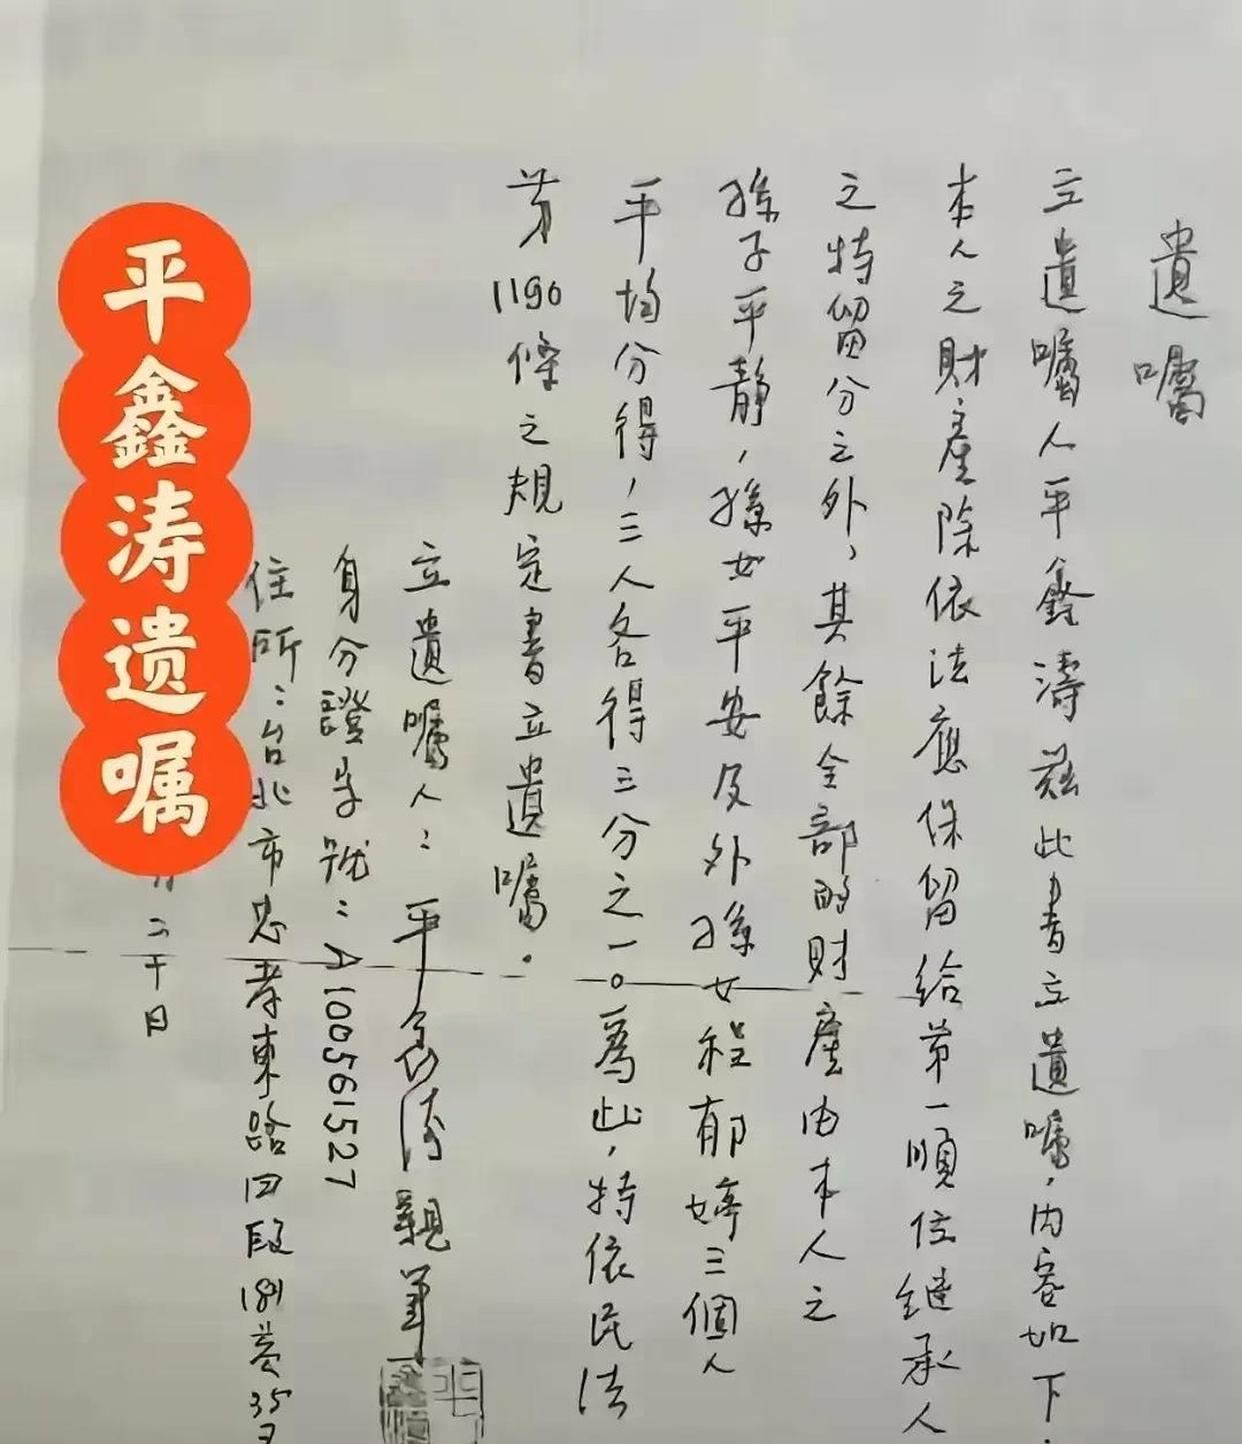 遺囑
立遺囑人平鑫濤茲此書立遺囑，內容如下：
本人之財產除依法應保留給第一順位繼承人
之特留分之外，其餘全部的財產由本人之
孫子平靜，孫女平安及外孫女程郁婷三個人
平均分得，三人各得三分之一。為此，特依民法
第1190條之規定書立遺囑。
立遺囑人：平鑫濤親筆
身分證字號：A100561527
住所：台北市忠孝東路四段181巷35
月二十日
平鑫涛遗嘱